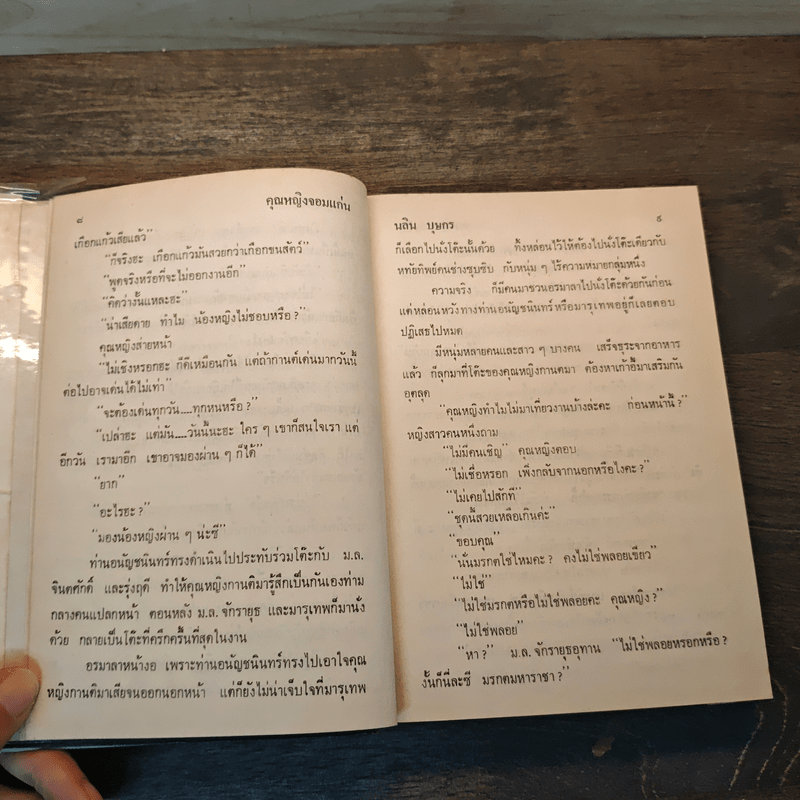 ๘
คุณหญิงจอมแก่น
เกือกแก้วเสียแล้ว”
“ก็จริงฮะ เกือกแก้วมันสวยกว่าเกือกขนสัตว์”
“พูดจริงหรือที่จะไม่ออกงานอีก”
“คิดว่างั้นแหละฮะ”
“น่าเสียดาย ทำไม น้องหญิงไม่ชอบหรือ ?”
คุณหญิงส่ายหน้า
“ไม่เชิงหรอกฮะ ก็ดีเหมือนกัน แต่ถ้ากานต์เด่นมากวันนี้
ต่อไปอาจเด่นได้ไม่เท่า”
“จะต้องเด่นทุกวัน.....ทุกหนหรือ ?”
“เปล่าฮะ แต่มัน.....วันนี้นะฮะ ใคร ๆ เขาก็สนใจเรา แต่
อีกวัน เรามาอีก เขาอาจมองผ่าน ๆ ก็ได้”
“ยาก”
“อะไรฮะ ?”
“มองน้องหญิงผ่าน ๆ น่ะซี”
ท่านอนัญชนินทร์ทรงดำเนินไปประทับร่วมโต๊ะกับ ม.ล.
จินตศักดิ์ และรุ่งฤดี ทำให้คุณหญิงกานติมารู้สึกเป็นกันเองท่าม
กลางคนแปลกหน้า ตอนหลัง ม.ล. จักรายุธ และมารุเทพก็มานั่ง
ด้วย กลายเป็นโต๊ะที่ครึกครื้นที่สุดในงาน
อรมาลาหน้างอ เพราะท่านอนัญชนินทร์ทรงไปเอาใจคุณ
หญิงกานติมาเสียจนออกนอกหน้า แต่ก็ยังไม่น่าเจ็บใจที่มารุเทพ
นลิน บุษกร
๙
ก็เลือกไปนั่งโต๊ะนั้นด้วย ทิ้งหล่อนไว้ให้ต้องไปนั่งโต๊ะเดียวกับ
หทัยทิพย์คนช่างซุบซิบ กับหนุ่ม ๆ ไร้ความหมายกลุ่มหนึ่ง
ความจริง ก็มีคนมาชวนอรมาลาไปนั่งโต๊ะด้วยกันก่อน
แต่หล่อนหวังทางท่านอนัญชนินทร์หรือมารุเทพอยู่ก็เลยตอบ
ปฏิเสธไปหมด
มีหนุ่มหลายคนและสาว ๆ บางคน เสร็จธุระจากอาหาร
แล้ว ก็ลุกมาที่โต๊ะของคุณหญิงกานติมา ต้องหาเก้าอี้มาเสริมกัน
อุตลุด
“คุณหญิงทำไมไม่มาเที่ยวงานบ้างล่ะคะ ก่อนหน้านี้ ?”
หญิงสาวคนหนึ่งถาม
“ไม่มีคนเชิญ” คุณหญิงตอบ
“ไม่เชื่อหรอก เพิ่งกลับจากนอกหรือไงคะ ?
“ไม่เคยไปสักที”
“ชุดนี้สวยเหลือเกินค่ะ”
“ขอบคุณ”
“นั่นมรกตใช่ไหมคะ ? คงไม่ใช่พลอยเขียว”
“ไม่ใช่”
“ไม่ใช่มรกตหรือไม่ใช่พลอยคะ คุณหญิง ?”
“ไม่ใช่พลอย”
“หา ?” ม.ล. จักรายุธอุทาน “ไม่ใช่พลอยหรอกหรือ ?
งั้นก็นี่ละซี มรกตมหาราชา ?”